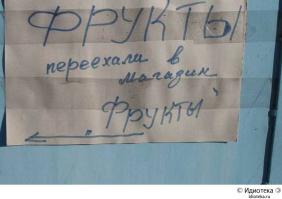 ФРУКТЫ
переехали в
магазин
"Фрукты"
© Идиотека
idioteka.ru